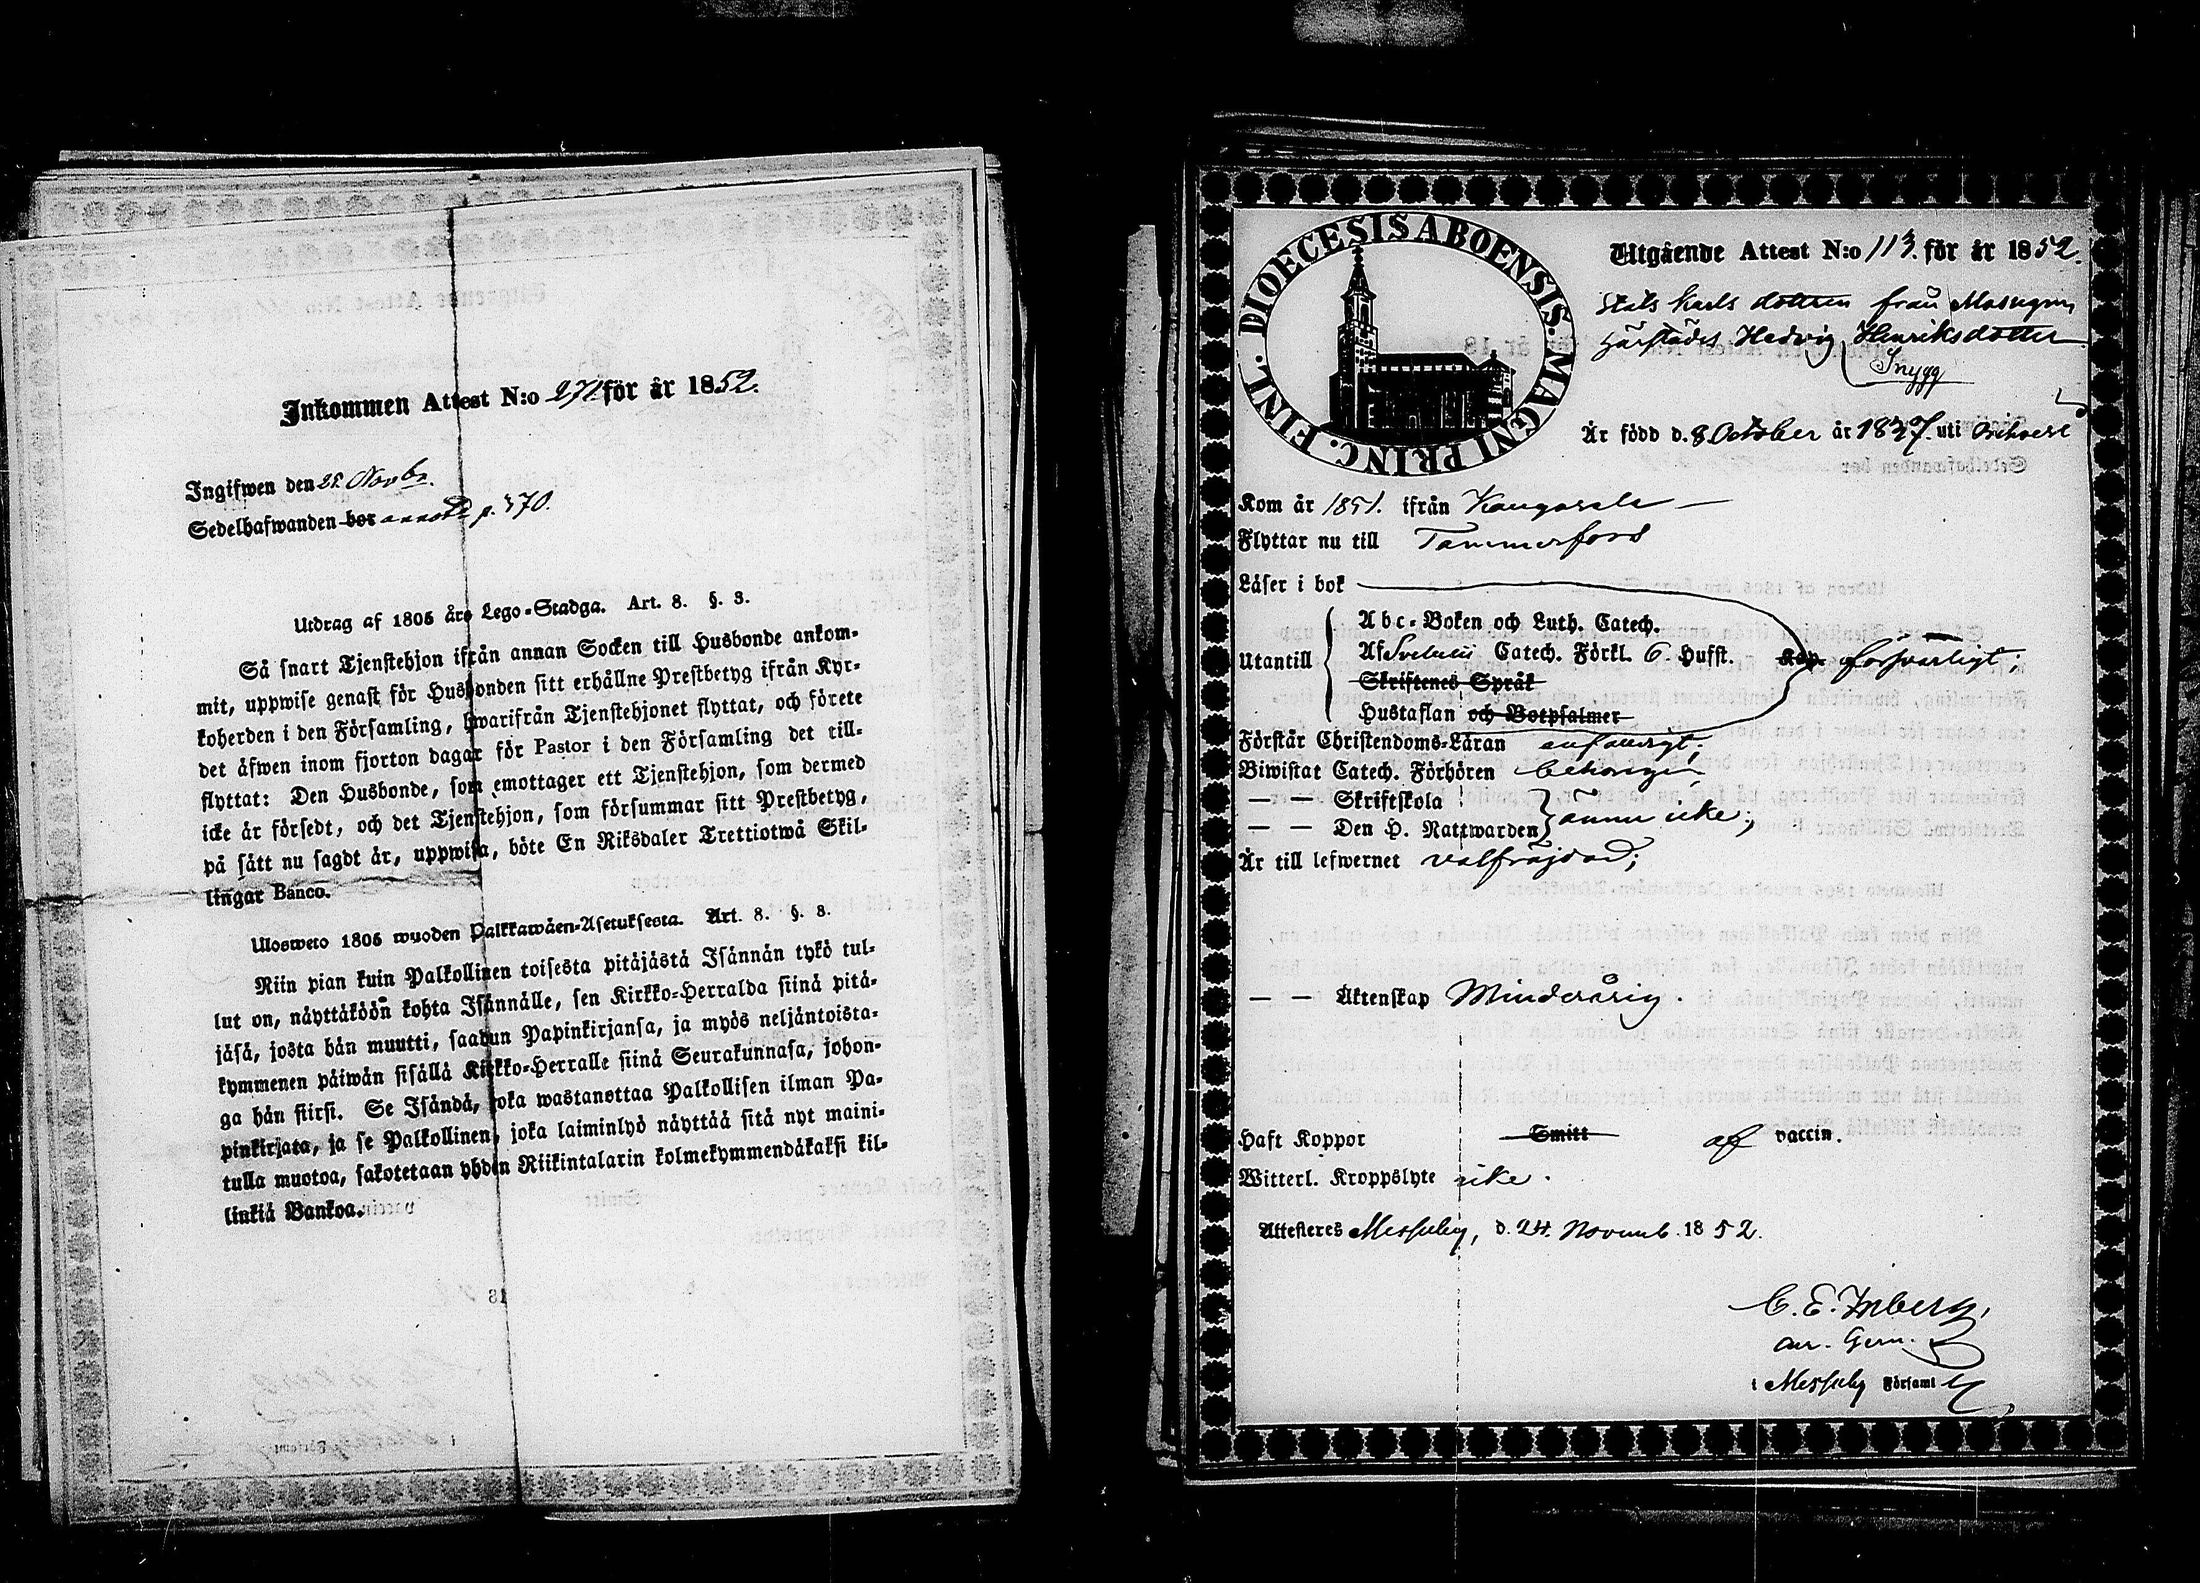 Inkommen Attest N:o 271 för år 1852.
Ingifwen den 25 Novbr.
Sedelhafwanden bor p. 370.
Utdrag af 1805 års Lego-Stadga. Art. 8. §. 3.
Så snart Tjenstehjon ifrån annan Socken till Husbonde ankom-
mit, uppwise genast för Husbonden sitt erhållne Prestbetyg ifrån Kyr-
koherden i den Församling, hwarifrån Tjenstehjonet flyttat, och förete
det äfwen inom fjorton dagar för Pastor i den Församling det till-
flyttat: Den Husbonde, som emottager ett Tjenstehjon, som dermed
icke är försedt, och det Tjenstehjon, som försummar sitt Prestbetyg,
på sätt nu sagdt är, uppwisa, böte En Riksdaler Trettiotwå Skil-
lingar Banco.
Ulosweto 1805 wuoden Palkkawäen-Asetuksesta. Art. 8. §. 3.
Niin pian kuin Palkollinen toisesta pitäjästä Isännän tykö tul-
lut on, näyttäköön kohta Isännälle, sen Kirkko-Herralda siinä pitä-
jäsä, josta hän muutti, saadun Papinkirjansa, ja myös neljäntoista-
kymmenen päiwän sisällä Kirkko-Herralle siinä Seurakunnasa, johon-
ga hän siirsi. Se Isändä, joka wastanottaa Palkollisen ilman Pa-
pinkirjata, ja se Palkollinen, joka laiminlyö näyttää sitä nyt maini-
tulla muotoa, sakotetaan yhden Riikintalarin kolmekymmendäkaksi kil-
linkiä Bankoa.
DIOECESIS ABOENSIS. MAGNI PRINC. FINL.
Utgående Attest N:o 113. för år 1852.
Stats karls dottren från Masugn
härstädes Hedvig Henriksdotter
Snygg
Är född d. 8 October år 1837. uti Orihvesi
Kom år 1851. ifrån Kangasala
Flyttar nu till Tammerfors
Läser i bok
Abc-Boken och Luth. Catech.
Utantill Af Svebelii Catech. Förkl. 6 Hufst. Kap. försvarligt;
Skriftenes Språk
Hustaflan och Botpsalmer
Förstår Christendoms-Läran enfaldigt;
Biwistat Catech. Förhören behörigen
— — Skriftskola
— — Den H. Nattwarden ännu icke;
Är till lefwernet välfräjdad;
— — Äktenskap Minderårig.
Haft Koppor Smitt af vaccin.
Witterl. Kroppslyte icke.
Attesteres Messuby, d. 24. Novemb. 1852.
C. E. Inberg,
i Messuby Församl